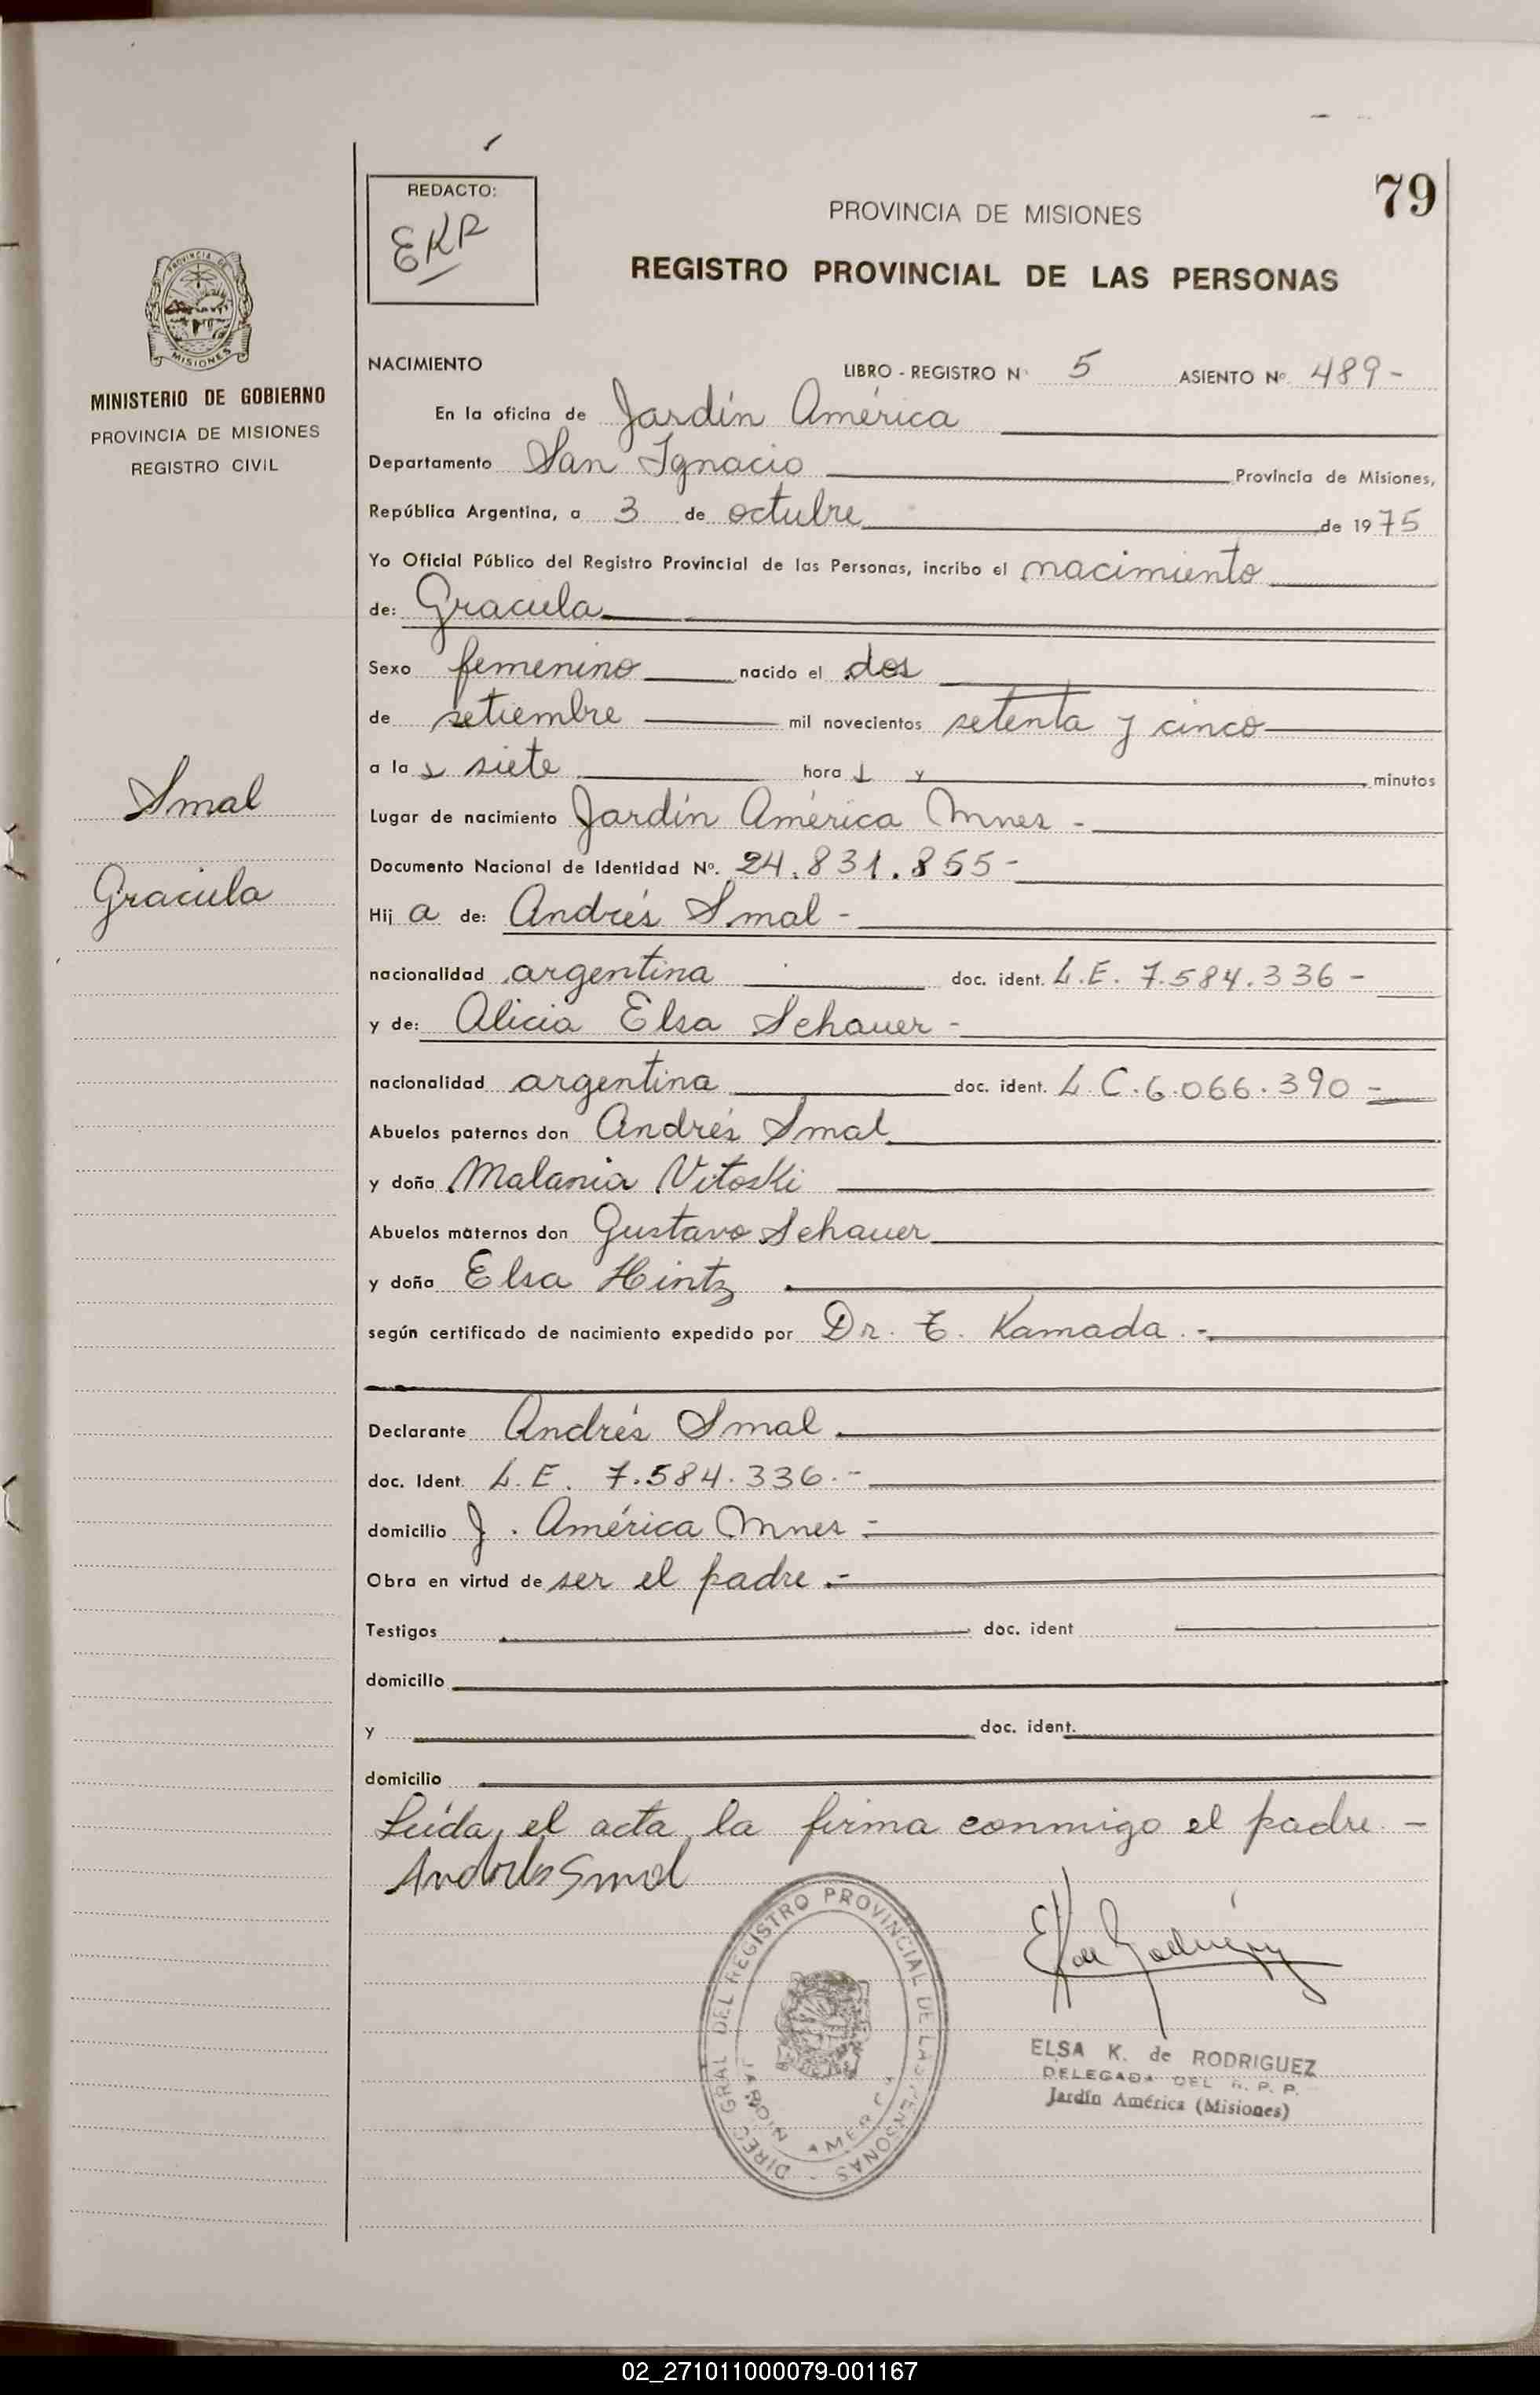 79
REDACTO:
EKR
PROVINCIA DE MISIONES
REGISTRO PROVINCIAL DE LAS PERSONAS
PROVINCIA DE
MISIONES
MINISTERIO DE GOBIERNO
PROVINCIA DE MISIONES
REGISTRO CIVIL
NACIMIENTO LIBRO - REGISTRO N° 5 ASIENTO Nº. 489-
En la oficina de Jardín América
Departamento San Ignacio Provincia de Misiones,
República Argentina, a 3 de octubre de 1975
Yo Oficial Público del Registro Provincial de las Personas, incribo el nacimiento
de: Graciela
Sexo femenino nacido el dos
de setiembre mil novecientos setenta y cinco
a la s siete hora s y minutos
Smal
Graciela
Lugar de nacimiento Jardín América Mnes -
Documento Nacional de Identidad Nº. 24.831.855-
Hij a de: Andrés Smal -
nacionalidad argentina doc. ident. L.E. 7.584.336 -
y de: Alicia Elsa Schauer -
nacionalidad argentina doc. ident. L.C. 6.066.390 -
Abuelos paternos don Andrés Smal
y doña Malania Vitoski
Abuelos maternos don Gustavo Schauer
y doña Elsa Hintz
según certificado de nacimiento expedido por Dr. T. Kamada.-
Declarante Andrés Smal
doc. Ident. L.E. 7.584.336.-
domicilio J. América Mnes -
Obra en virtud de ser el padre.-
Testigos doc. ident
domicilio
y doc. ident.
domicilio
Leída el acta, la firma conmigo el padre. -
Andrés Smal
DIREC GRAL DEL REGISTRO PROVINCIAL DE LAS PERSONAS -
JARDIN AMERICA
EK de Rodríguez
ELSA K. de RODRIGUEZ
DELEGADA DEL R. P. P.
Jardín América (Misiones)
02_271011000079-001167